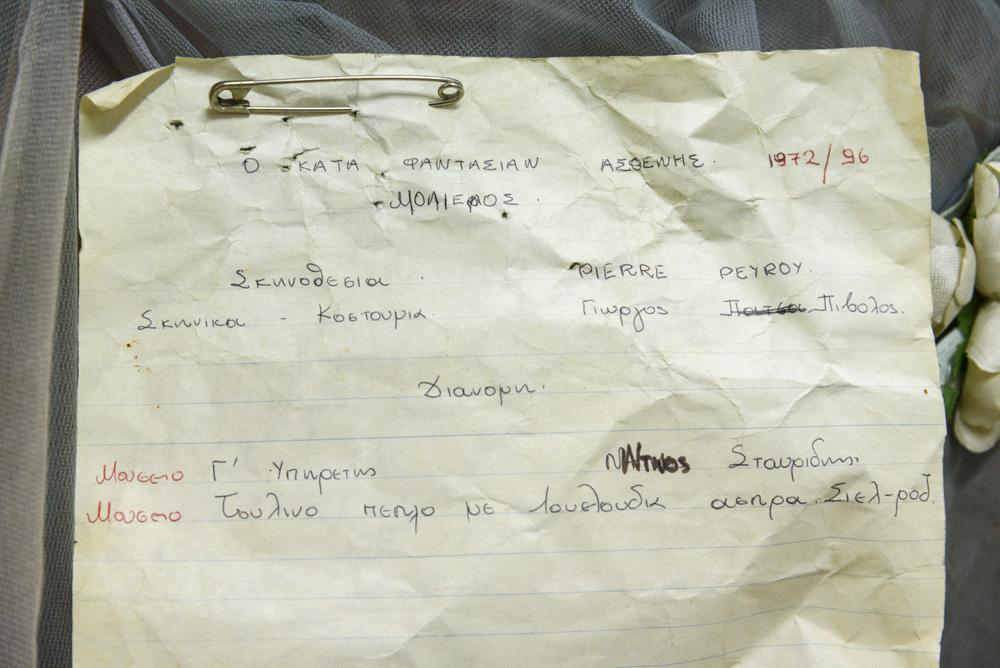 Ο ΚΑΤΑ ΦΑΝΤΑΣΙΑΝ ΑΣΘΕΝΗΣ. 1972/96
ΜΟΛΙΕΡΟΣ.
Σκηνοθεσια. PIERRE PEYROY.
Σκηνικα - Κοστουμια. Γιωργος Πιβολος.
Διανομη.
Μουσειο Γ' Υπηρετης Σταυριδης
Μουσειο Τουλινο πεπλο με λουλουδια ασπρα. Σιελ-ροζ.